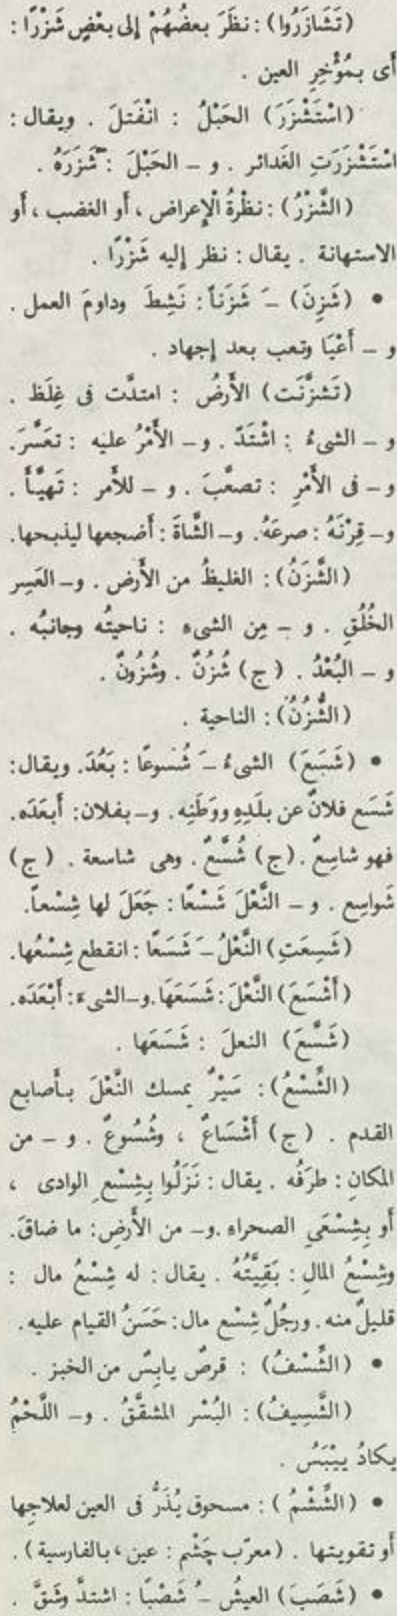 (تَشَازَرُوا) : نظَرَ بعضُهُمْ إلى بعْضٍ شَزْرًا :
أى بمُؤْخِرِ العين .
(اسْتَشْزَرَ) الحَبْلُ : انْفَتلَ . ويقال :
اسْتَشْزَرَتِ الغَدائر . و – الحَبْلَ : شَزَرَهُ .
(الشَّزْرُ) : نظْرةُ الْإعراض ، أو الغضب ، أو
الاستهانة . يقال : نظر إليه شَزْرًا .
• (شَزِنَ) ـَ شَزَناً : نَشِطَ وداومَ العمل .
و – أَعْيَا وتعب بعد إجهاد .
(تَشزَّنَت) الأَرضُ : امتدَّت فى غِلَظ .
و – الشىءُ : اشْتَدَّ . و– الأَمْرُ عليه : تعَسَّرَ.
و– فى الأَمْرِ : تصعَّبَ . و – للأَمر : تَهيَّأَ .
و– قِرْنَهُ : صرعَهُ. و– الشَّاةَ : أَضجعها ليذبحها.
(الشَّزَنُ) : الغليظُ من الأَرض . و– العَسِر
الخُلُقِ . و – مِن الشىءِ : ناحيتُه وجانبُه .
و – البُعْدُ . (ج) شُزُنٌ . وشُزُونٌ .
(الشُّزُنُ) : الناحية .
• (شَسَعَ) الشىءُ ـَ شُسوعًا : بَعُدَ. ويقال :
شَسَع فلانٌ عن بلَدِهِ ووَطَنِه. و– بفلان : أَبعَدَه.
فهو شاسِعٌ . (ج) شُسَّعٌ . وهى شاسعة . (ج)
شَواسِع . و – النَّعْلَ شَسْعًا : جَعَلَ لها شِسْعاً.
(شَسِعَتِ) النَّعْلُ ـَ شَسَعًا : انقطع شِسْعُها.
(أَشْسَعَ) النَّعْلَ : شَسَعَهَا. و– الشىءَ : أَبْعَدَه.
(شَسَّعَ) النعلَ : شَسَعَها .
(الشِّسْعُ) : سَيْرٌ يمسك النَّعْلَ بأَصابع
القدم . (ج) أَشْسَاعٌ ، وشُسُوعٌ . و – من
المكانِ : طرَفُه . يقال : نَزَلُوا بِشِسْعِ الوادى ،
أو بِشِسْعَىِ الصحراءِ . و– من الأَرضِ : ما ضاقَ.
وشِسْعُ المالِ : بَقِيَّتُهُ . يقال : له شِسْعُ مال :
قليلٌ منه. ورجُلٌ شِسْع مال : حَسَنُ القيام عليه.
• (الشِّسْفُ) : قرصٌ يابِسٌ من الخبز .
(الشَّسِيفُ) : البُسْر المشقَّقُ . و– اللَّحْمُ
يكادُ ييْبَسُ .
• (الشِّشْمُ) : مسحوق يُذَرُّ فى العين لعلاجها
أو تقويتها . (معرّب چَشْم : عين ، بالفارسية) .
• (شَصَبَ) العيشُ ـُ شَصْبًا : اشتدَّ وشَقَّ .